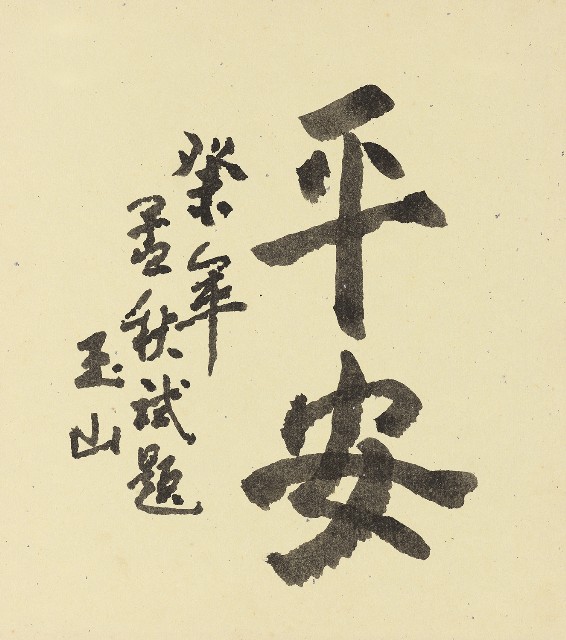 平安
癸年
孟秋試題
玉山